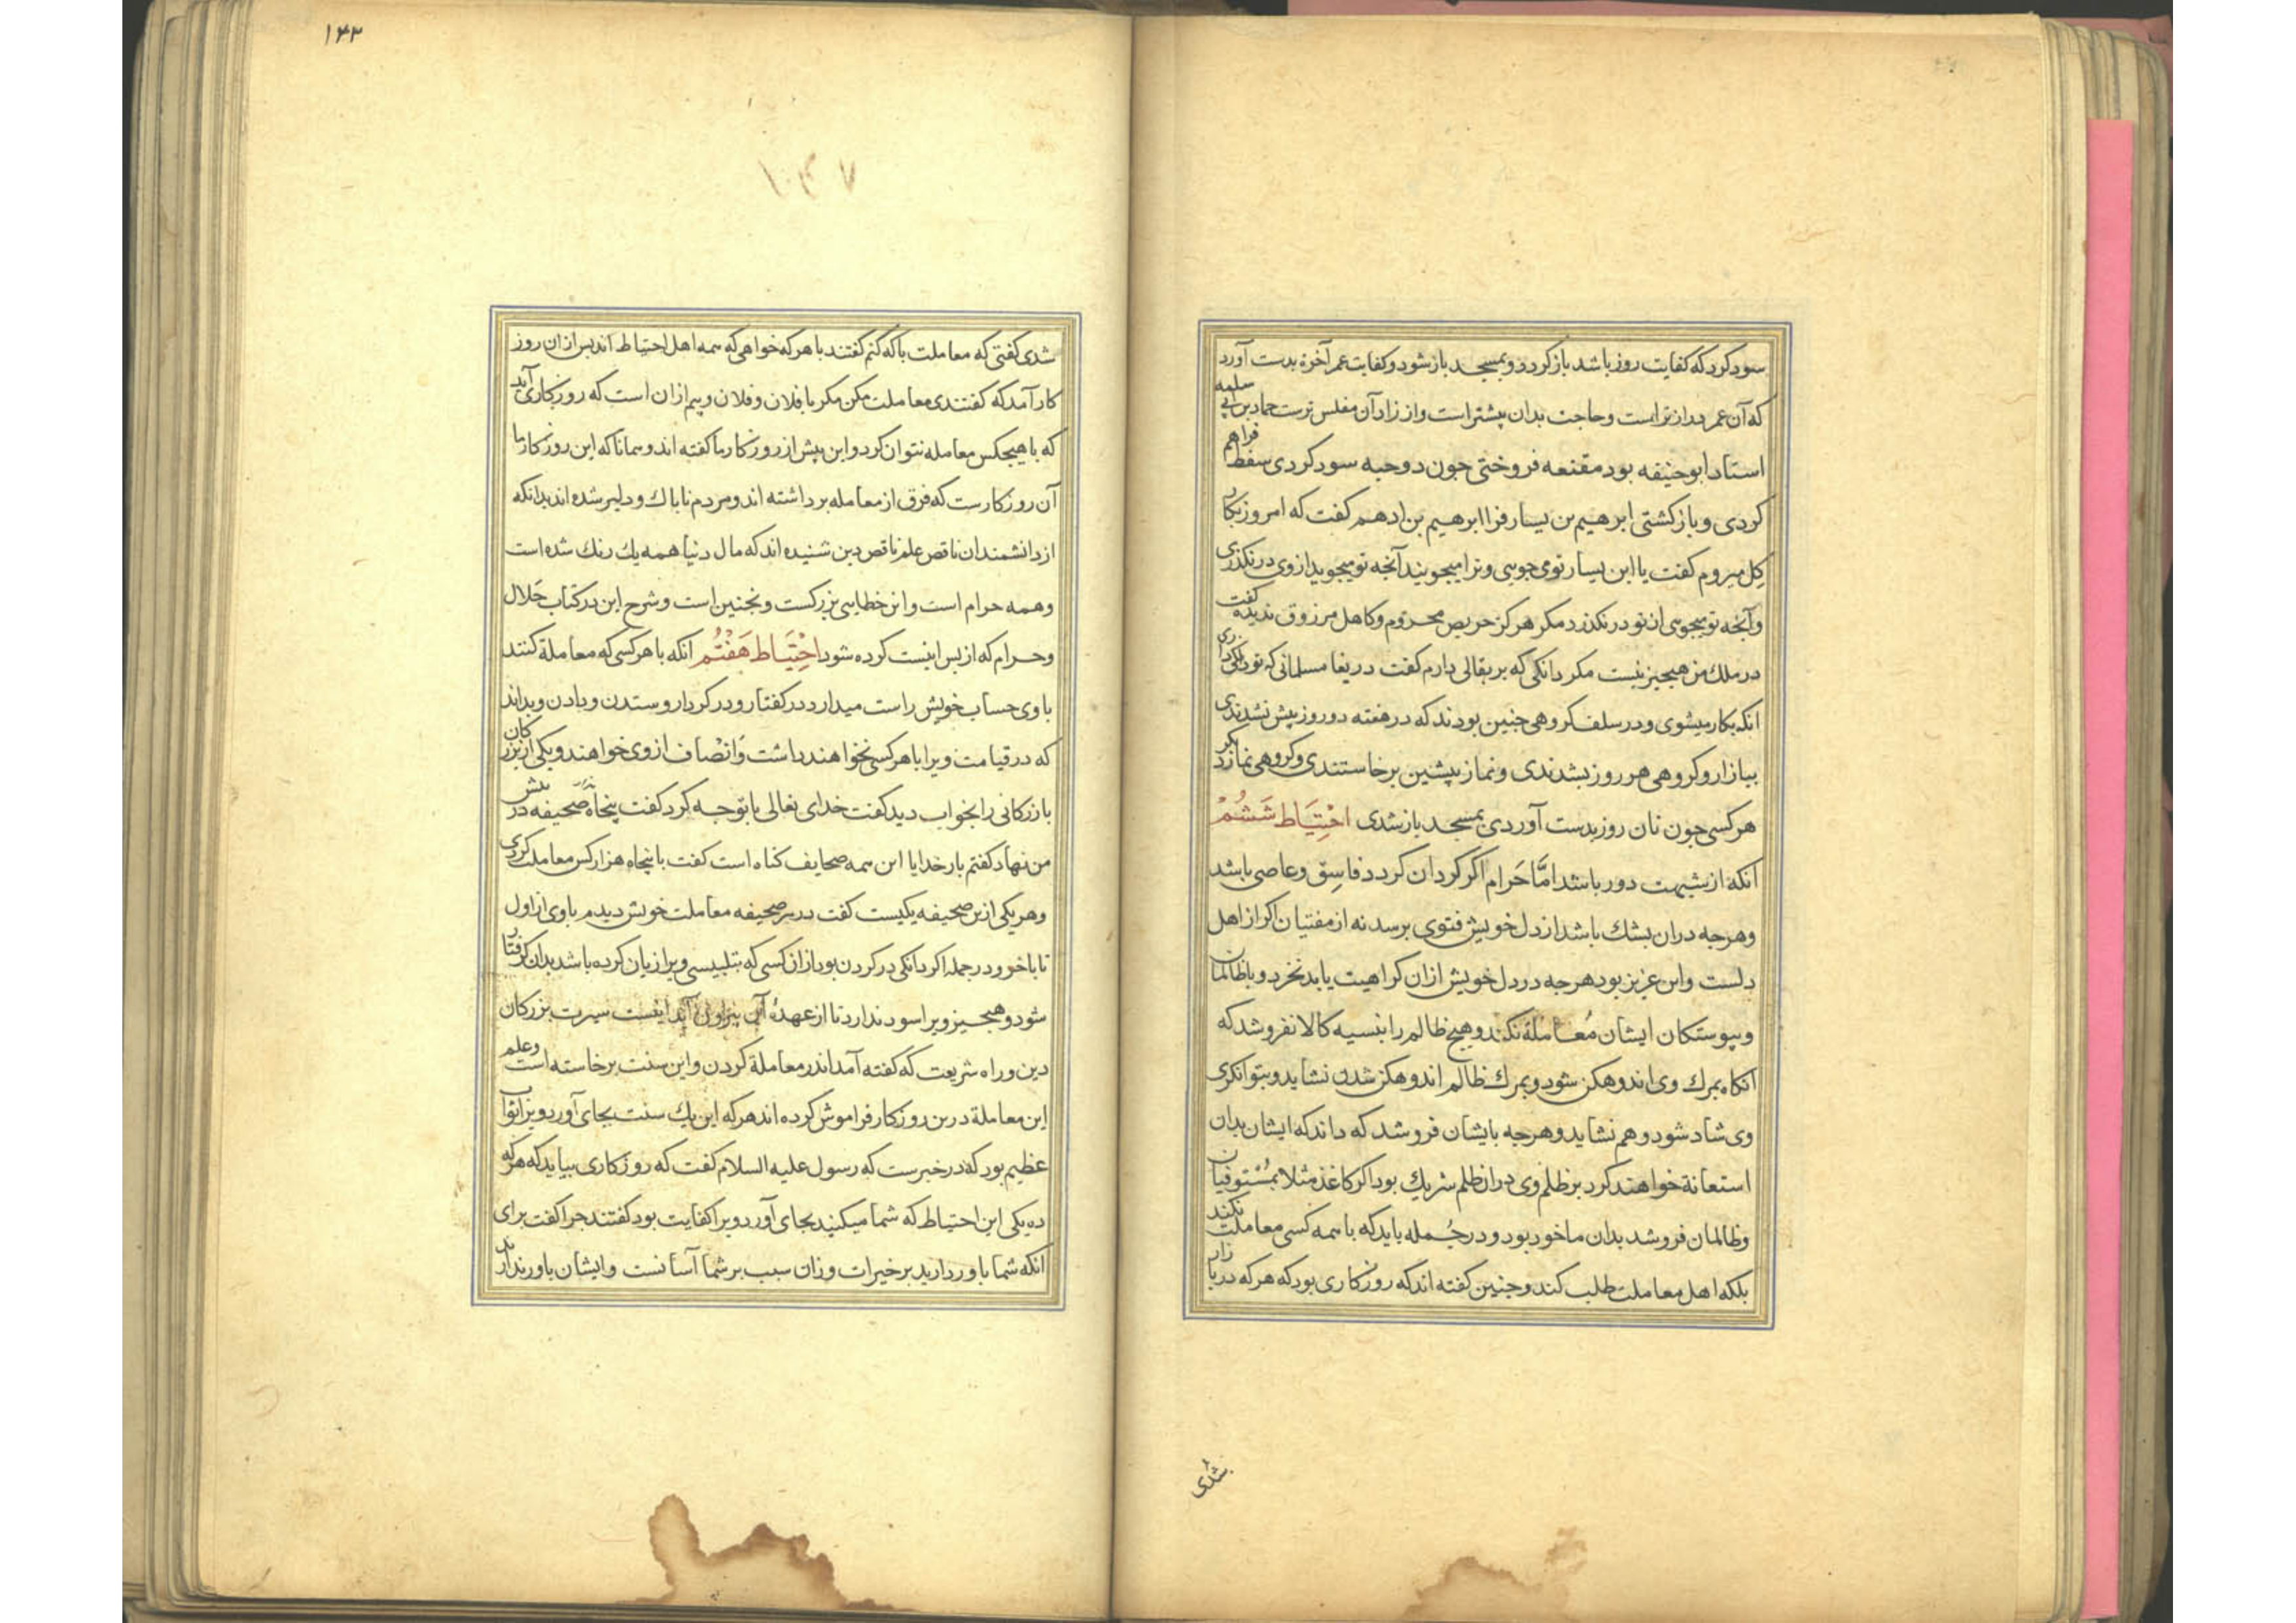 سود کرد که کفایت روز باشد باز کردد و بمسجد باز شود و کفایت عمر آخرة بدست آورد
که آن عمر درازتر است و حاجت بدان بیشتر است و از زاد آن مفلس ترست حماد بن ابی سلمه
استاد ابو حنیفه بود مقنعه فروختی جون دو حبه سود کردی سفط فراهم
کردی و باز کشتی ابرهیم بن یسار فرا ابرهیم بن ادهم کفت که امروز بکار
کل میروم کفت یا ابن یسار تو می جویی و ترا میجویند آنجه تو میجوید از وی در نکذری
و آنجه تو میجویی از تو در نکذرد مکر هرکز حریص محروم و کاهل مرزوق ندیده کفت
در ملک من هیجیز نیست مکر دانکی که بر بقالی دارم کفت دریغا مسلمانی که تو دانکی داری
انکه بکار میشوی و در سلف کروهی جنین بودند که در هفته دو روز بیش نشدندی
ببازار و کروهی هر روز بشدندی و نماز پیشین برخاستندی و کروهی نماز دیکر
هر کسی جون نان روز بدست آوردی بمسجد باز شدی احتیاط ششم
آنکه از شبهت دور باشد امّا حرام اکر کرد آن کردد فاسق و عاصی باشد
و هرجه در ان بشک باشد از دل خویش فتوی برسد نه از مفتیان اکر از اهل
دلست و این عزیز بود هرجه در دل خویش از ان کراهیت یابد نخرد و با ظالمان
و پیوستکان ایشان معاملة نکند و هیج ظالم را بنسیه کالا نفروشد که
آنکاه بمرک وی اندوهکن شود و بمرک ظالم اندوهکن شدن نشاید و بتوانکری
وی شاد شود و هم نشاید و هرجه بایشان فروشد که داند که ایشان بدان
استعانة خواهند کرد بر ظلم وی در ان ظلم شریک بود اکر کاغذ مثلا بمستوفیان
و ظالمان فروشد بدان ماخوذ بود و در جمله باید که با همه کسی معاملت نکند
بلکه اهل معاملت طلب کند و جنین کفته اند که روزکاری بود که هر که در بازار
شدی
۱۴۳
۱۰۳۷
شدی کفتی که معاملت با که کنم کفتند با هر که خواهی که همه اهل احتیاط اند پس از ان روز
کار آمد که کفتندی معاملت مکن مکر با فلان و فلان و بیم از ان است که روزکاری آید
که با هیجکس معامله نتوان کرد و این پیش از روزکار ما کفته اند و همانا که این روزکار ما
آن روزکارست که فرق از معامله برداشته اند و مردم ناباک و دلیر شده اند بدانکه
از دانشمندان ناقص علم ناقص دین شنیده اند که مال دنیا همه یک رنک شده است
و همه حرام است و این خطایی بزرکست و نجنین است و شرح این در کتاب حلال
و حرام که از پس اینست کرده شود احتیاط هفتم آنکه با هر کسی که معاملة کنند
با وی حساب خویش راست میدارد در کفتار و در کردار و ستدن و دادن و بداند
که در قیامت ویرا با هر کسی بخواهند داشت و انصاف از وی خواهند و یکی از بزرکان
بازرکانی را بخواب دید کفت خدای تعالی با تو جه کرد کفت پنجاه صحیفه در پیش
من نهاد کفتم بار خدایا این همه صحایف کناه است کفت با پنجاه هزار کس معاملت کردی
و هر یکی از ین صحیفه یکیست کفت در هر صحیفه معاملت خویش دیدم با وی از اول
تا باخر و در جمله اکر دانکی در کردن بود از ان کسی که بتلبیسی ویرا زیان کرده باشد بدان کرفتار
شود و هیجیز ویرا سود ندارد تا از عهدهٔ آن بیرون آید اینست سیرت بزرکان
دین و راه شریعت که کفته آمد اندر معاملة کردن و این سنت برخاسته است و علم
این معاملة درین روزکار فراموش کرده اند هر که این یک سنت بجای آورد ویرا ثواب
عظیم بود که در خبرست که رسول علیه السلام کفت که روزکاری بیاید که هر که
ده یکی این احتیاط که شما میکنید بجای آورد ویرا کفایت بود کفتند جرا کفت برای
آنکه شما یاور دارید بر خیرات و زان سبب بر شما آسانست و ایشان یاور ندارند